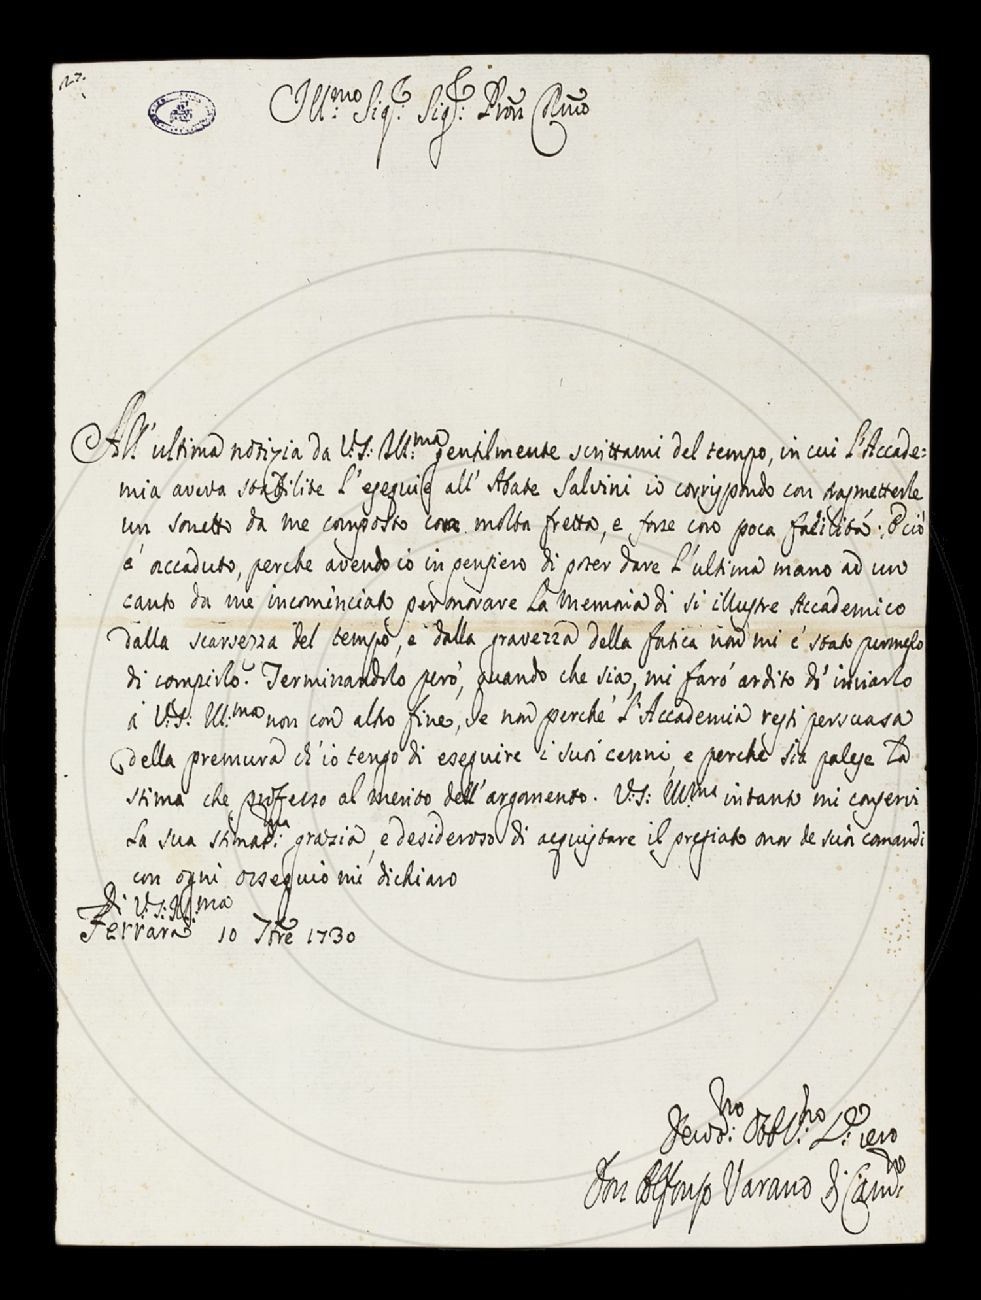 27.
Ill:mo Sig:r Sig:r Pron Cmo
All'ultima notizia da V:S: Ill:ma gentilmente scrittami del tempo, in cui l'Accade=
mia aveva stabilite l'esequie all'Abate Salvini io corrispondo con trasmetterle
un sonetto da me composto con molta fretta, e forse con poca felicità. Ciò
è accaduto, perche avendo io in pensiero di poter dare l'ultima mano ad un
canto da me incominciato per onorare la memoria di si illustre Accademico
dalla scarsezza del tempo, e dalla gravezza della fatica non mi è stato permesso
di compirlo. Terminandolo però, quando che sia, mi farò ardito d'inviarlo
à V:S: Ill:ma non con altro fine, se non perchè l'Accademia resti persuasa
della premura ch'io tengo di eseguire i suoi cenni, e perche sia palese la
stima che professo al merito dell'argomento. V:S: Ill:ma intanto mi conservi
la sua stimat:ma grazia, e desideroso di acquistare il pregiato onor de suoi comandi
con ogni ossequio mi dichiaro
Di V:S: Ill:ma
Ferrara 10 1730
Devo:mo Obbl:mo re vero
Don Alfonso Varano di Cam:no